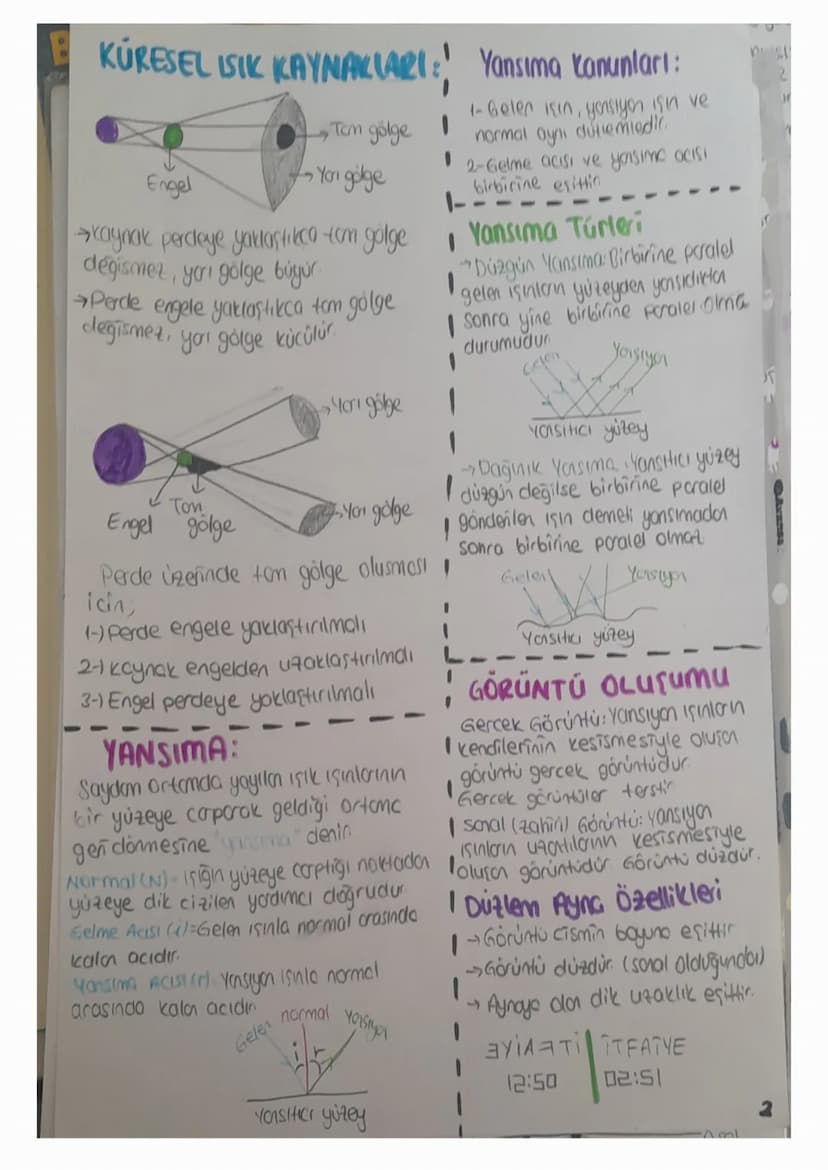 KÜRESEL IŞIK KAYNAKLARI:
Tam gölge
Yarı gölge
Engel
→Kaynak perdeye yaklaştıkca tam gölge
değişmez, yarı gölge büyür.
→Perde engele yaklaştıkca tam gölge
değişmez, yarı gölge küçülür.
Yarı gölge
Engel
Tam
gölge
Yarı gölge
Perde üzerinde tam gölge oluşması
için,
1-) Perde engele yaklaştırılmalı
2-) Kaynak engelden uzaklaştırılmalı
3-) Engel perdeye yaklaştırılmalı
YANSIMA:
Saydam ortamda yayılan ışık ışınlarının
bir yüzeye çarparak geldiği ortama
geri dönmesine "yansıma" denir.
Normal(N)= Işığın yüzeye çarptığı noktadan
yüzeye dik çizilen yardımcı doğrudur
Gelme Acısı (i)=Gelen ışınla normal arasında
kalan acıdır.
Yansıma Acısı(r): Yansıyan ışınla normal
arasında kalan acıdır.
Gelen
normal
Yansıyan
i
r
Yansıtıcı yüzey
Yansıma Kanunları:
1- Gelen ışın, yansıyan ışın ve
normal aynı düzlemdedir.
2-Gelme acısı ve yansıma acısı
birbirine eşittir.
Yansıma Türleri
→Düzgün Yansıma: Birbirine paralel
gelen ışınların yüzeyden yansıdıktan
sonra yine birbirine paralel olma
durumudur.
Gelen
Yansıyan
Yansıtıcı yüzey
→Dağınık Yansıma: Yansıtıcı yüzey
düzgün değilse birbirine paralel
gönderilen ışın demeti yansımadan
sonra birbirine paralel olmaz
Gelen
Yansıyan
Yansıtıcı yüzey
GÖRÜNTÜ OLUŞUMU
Gerçek Görüntü: Yansıyan ışınların
kendilerinin kesişmesiyle oluşan
görüntü gerçek görüntüdür.
Gerçek görüntüler terstir.
Sanal (zahiri) Görüntü: Yansıyan
ışınların uzantılarının kesişmesiyle
oluşan görüntüdür Görüntü düzdür.
Düzlem Ayna Özellikleri
→Görüntü cismin boyuna eşittir
→Görüntü düzdür. (sanal olduğundan)
→ Aynaya olan dik uzaklık eşittir.
ƎYİAᖷTİ İTFAİYE
12:50 02:51
2